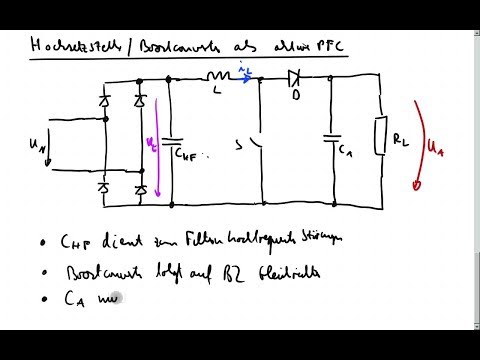 Hochsetzsteller / Boostconverter als aktive PFC
i_L
L
D
U_N
U_E
C_HF
S
C_A
R_L
U_A
• C_HF dient zum Filtern hochfrequenter Störungen
• Boostconverter folgt auf B2 Gleichrichter
• C_A mu